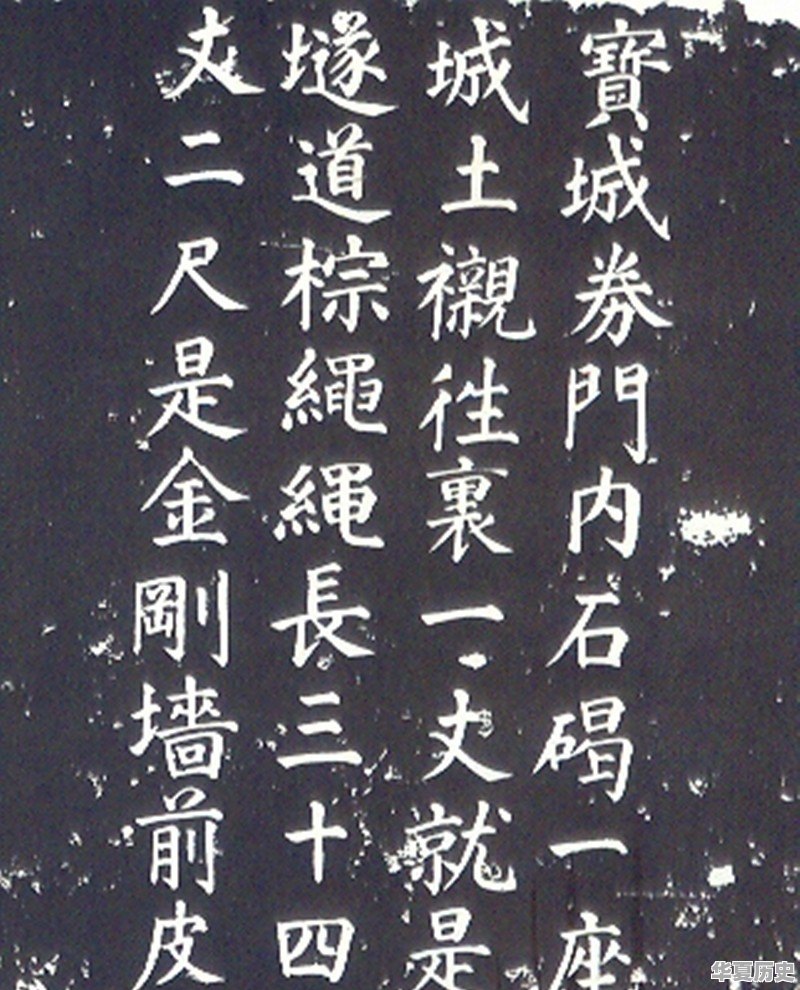 寶城券門内石碣一座
城土襯徃裏一丈就是
墜道棕繩繩長三十四
丈二尺是金剛墙前皮
华夏历史